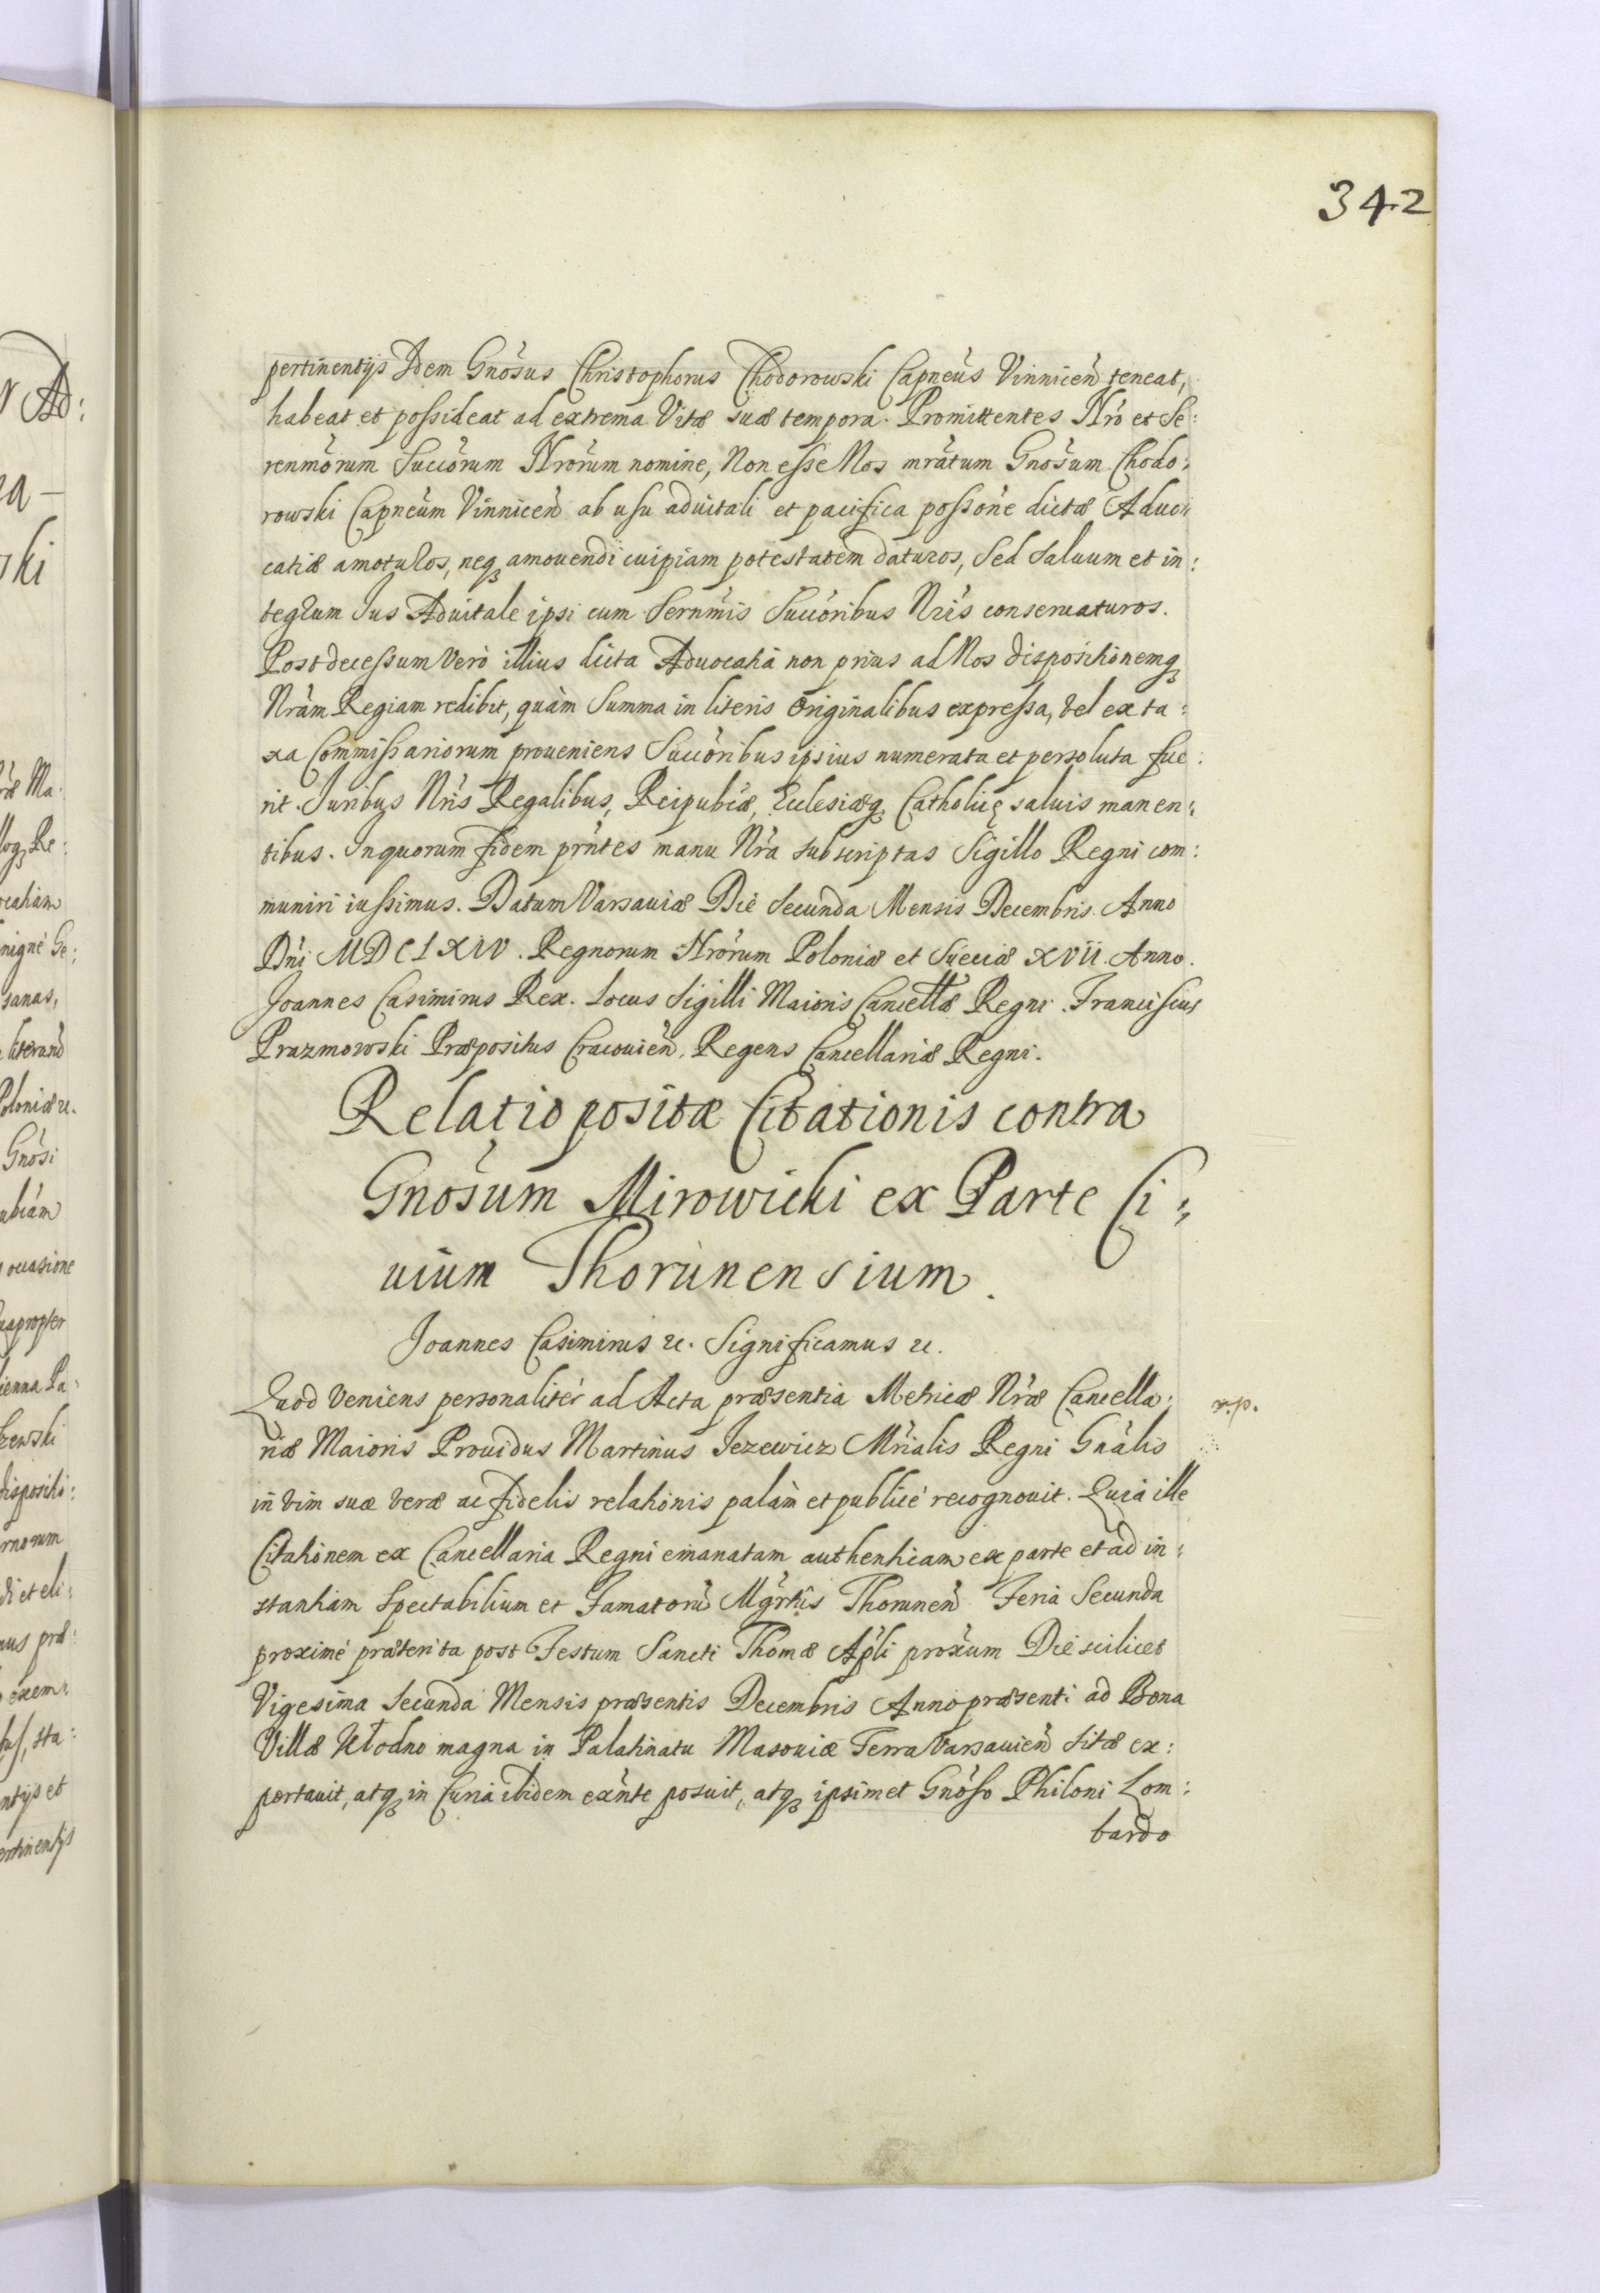 342
pertinentijs Idem Gnosus Christophorus Chodorowski Capneus Vinnicen teneat,
habeat et possideat ad extrema Vitæ suæ tempora. Promittentes Nro et Se:
renmorum Succorum Nrorum nomine, Non esse Nos mratum Gnosum Chodo:
rowski Capneum Vinnicen ab usu aduitali et pacifica possone dictæ Aduo:
catiæ amoturos, neq amouendi cuipiam potestatem daturos, Sed Saluum et in:
tegrum Jus Aduitale ipsi cum Sernmis Succoribus Nris conseruaturos.
Post decessum Verò illius dicta Aduocatia non prius ad Nos dispositionemq
Nram Regiam redibit, quàm Summa in literis Originalibus expressa, Vel ex ta:
xa Commissariorum proueniens Succoribus ipsius numerata et persoluta fue:
rit. Juribus Nris Regalibus, Reipubcæ, Ecclesiæq Catholicę saluis manen:
tibus. In quorum fidem prntes manu Nra subscriptas Sigillo Regni com:
muniri iussimus. Datum Varsauiæ Die Secunda Mensis Decembris Anno
Dni MDCLXIV. Regnorum Nrorum Poloniæ et Sueciæ XVII Anno.
Joannes Casimirus Rex. Locus Sigilli Maioris Cancellæ Regni. Franciscus
Prazmowski Præpositus Cracouien. Regens Cancellariæ Regni.
Relatio positæ Citationis contra
Gnosum Mirowicki ex Parte Ci:
uium Thorunensium.
Joannes Casimirus etc. Significamus etc.
Quod Veniens personalitér ad Acta præsentia Metricæ Nræ Cancella:
r.p.
riæ Maioris Prouidus Martinus Jezewicz Mrialis Regni Gnalis
in Vim suæ Veræ ac fidelis relationis palàm et publicè recognouit. Quia ille
Citationem ex Cancellaria Regni emanatam authenticam ex parte et ad in:
stantiam Spectabilium et Famatoru Mgrtis Thorunen Feria Secunda
proximé præterita post Festum Sancti Thomæ Apli proxum Die scilicet
Vigesima Secunda Mensis præsentis Decembris Anno præsenti ad Bona
Villæ Kłodno magna in Palatinatu Masouiæ Terra Varsauien sitæ ex:
portauit, atq in Curia ibidem exnte posuit, atq ipsimet Gnoso Philoni Lom:
bardo